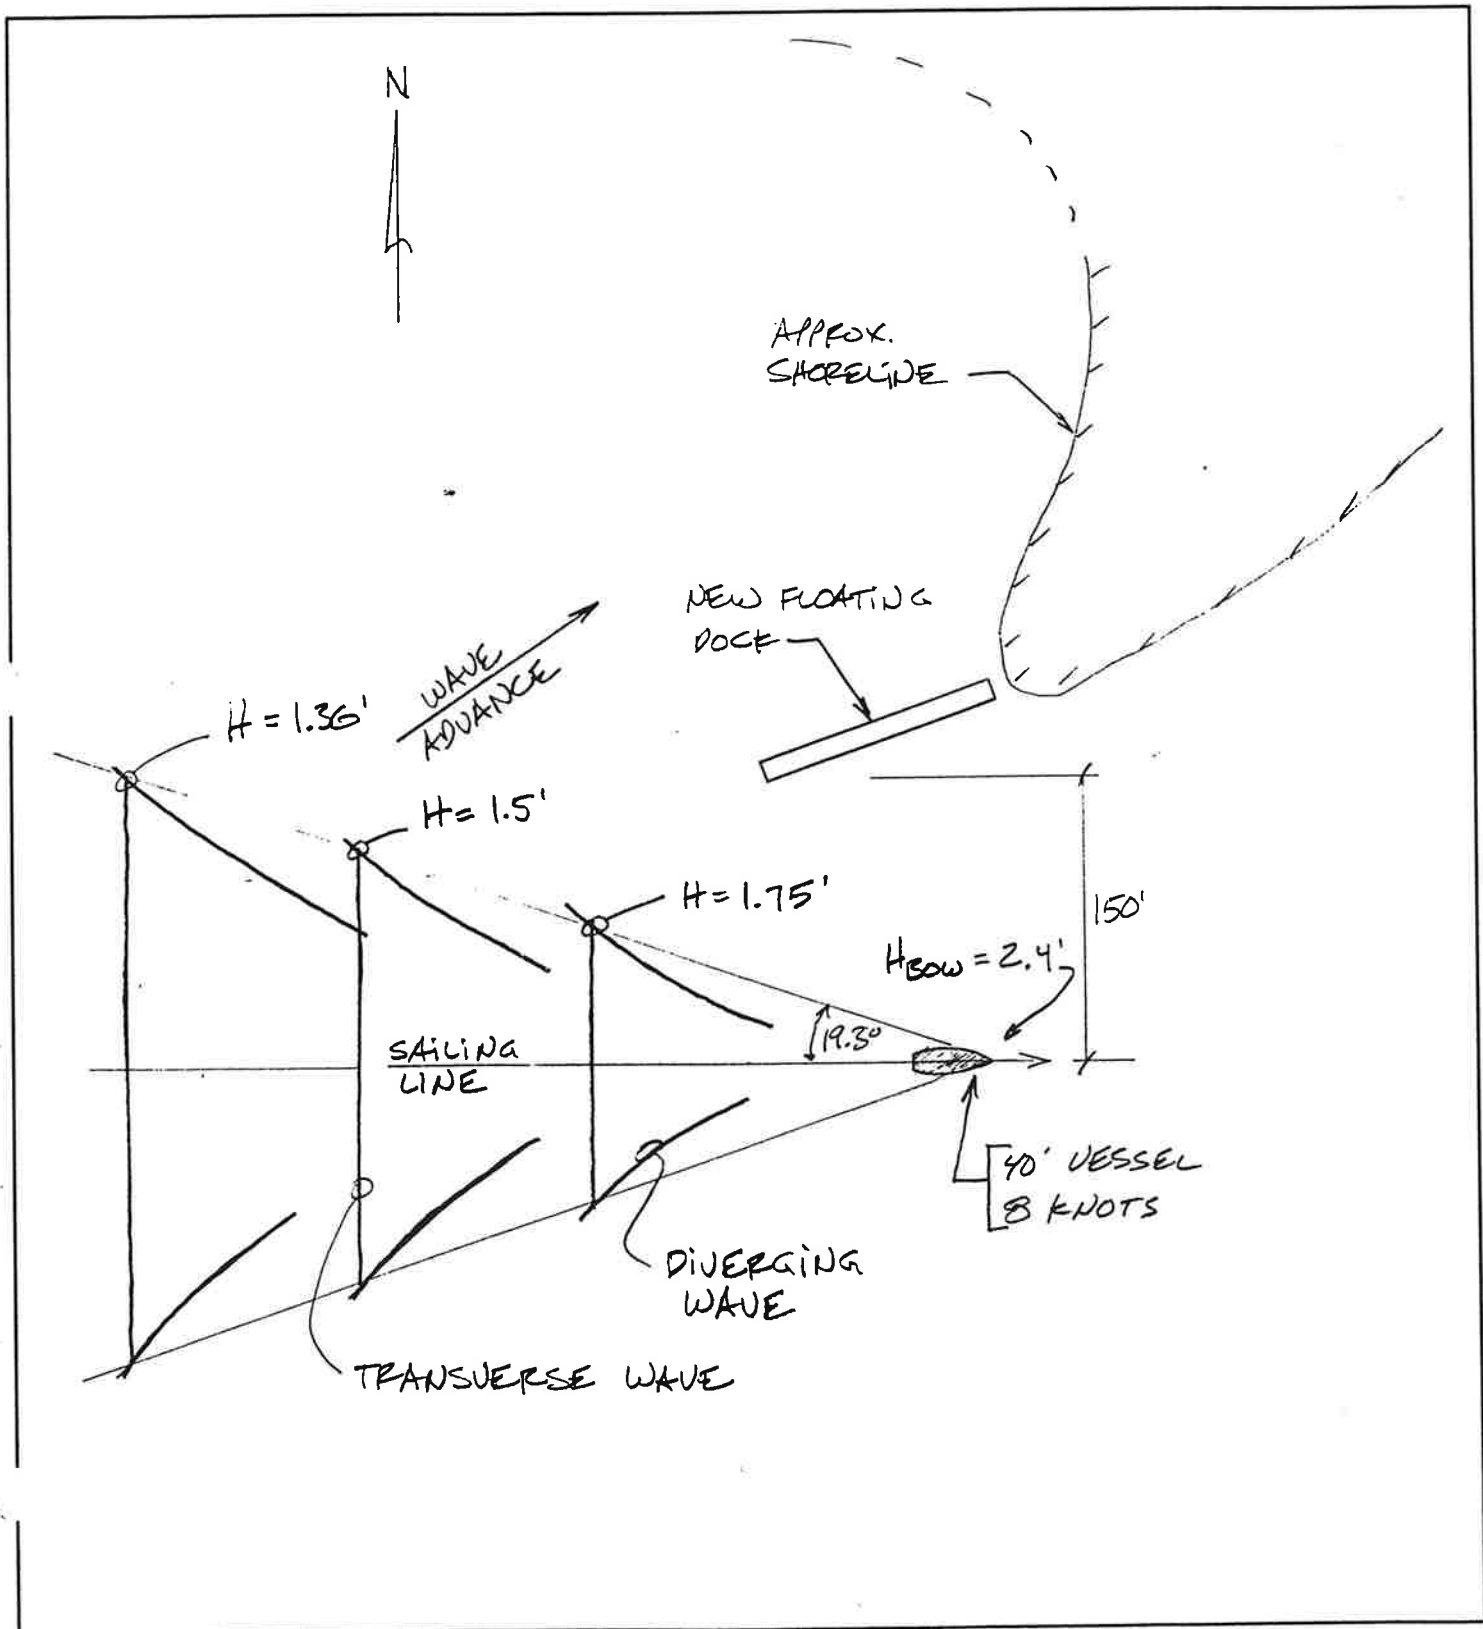 N
APPROX.
SHORELINE
NEW FLOATING
DOCK
WAVE
ADVANCE
H = 1.36'
H = 1.5'
H = 1.75'
150'
HBOW = 2.4'
19.3°
SAILING
LINE
40' VESSEL
8 KNOTS
DIVERGING
WAVE
TRANSVERSE WAVE